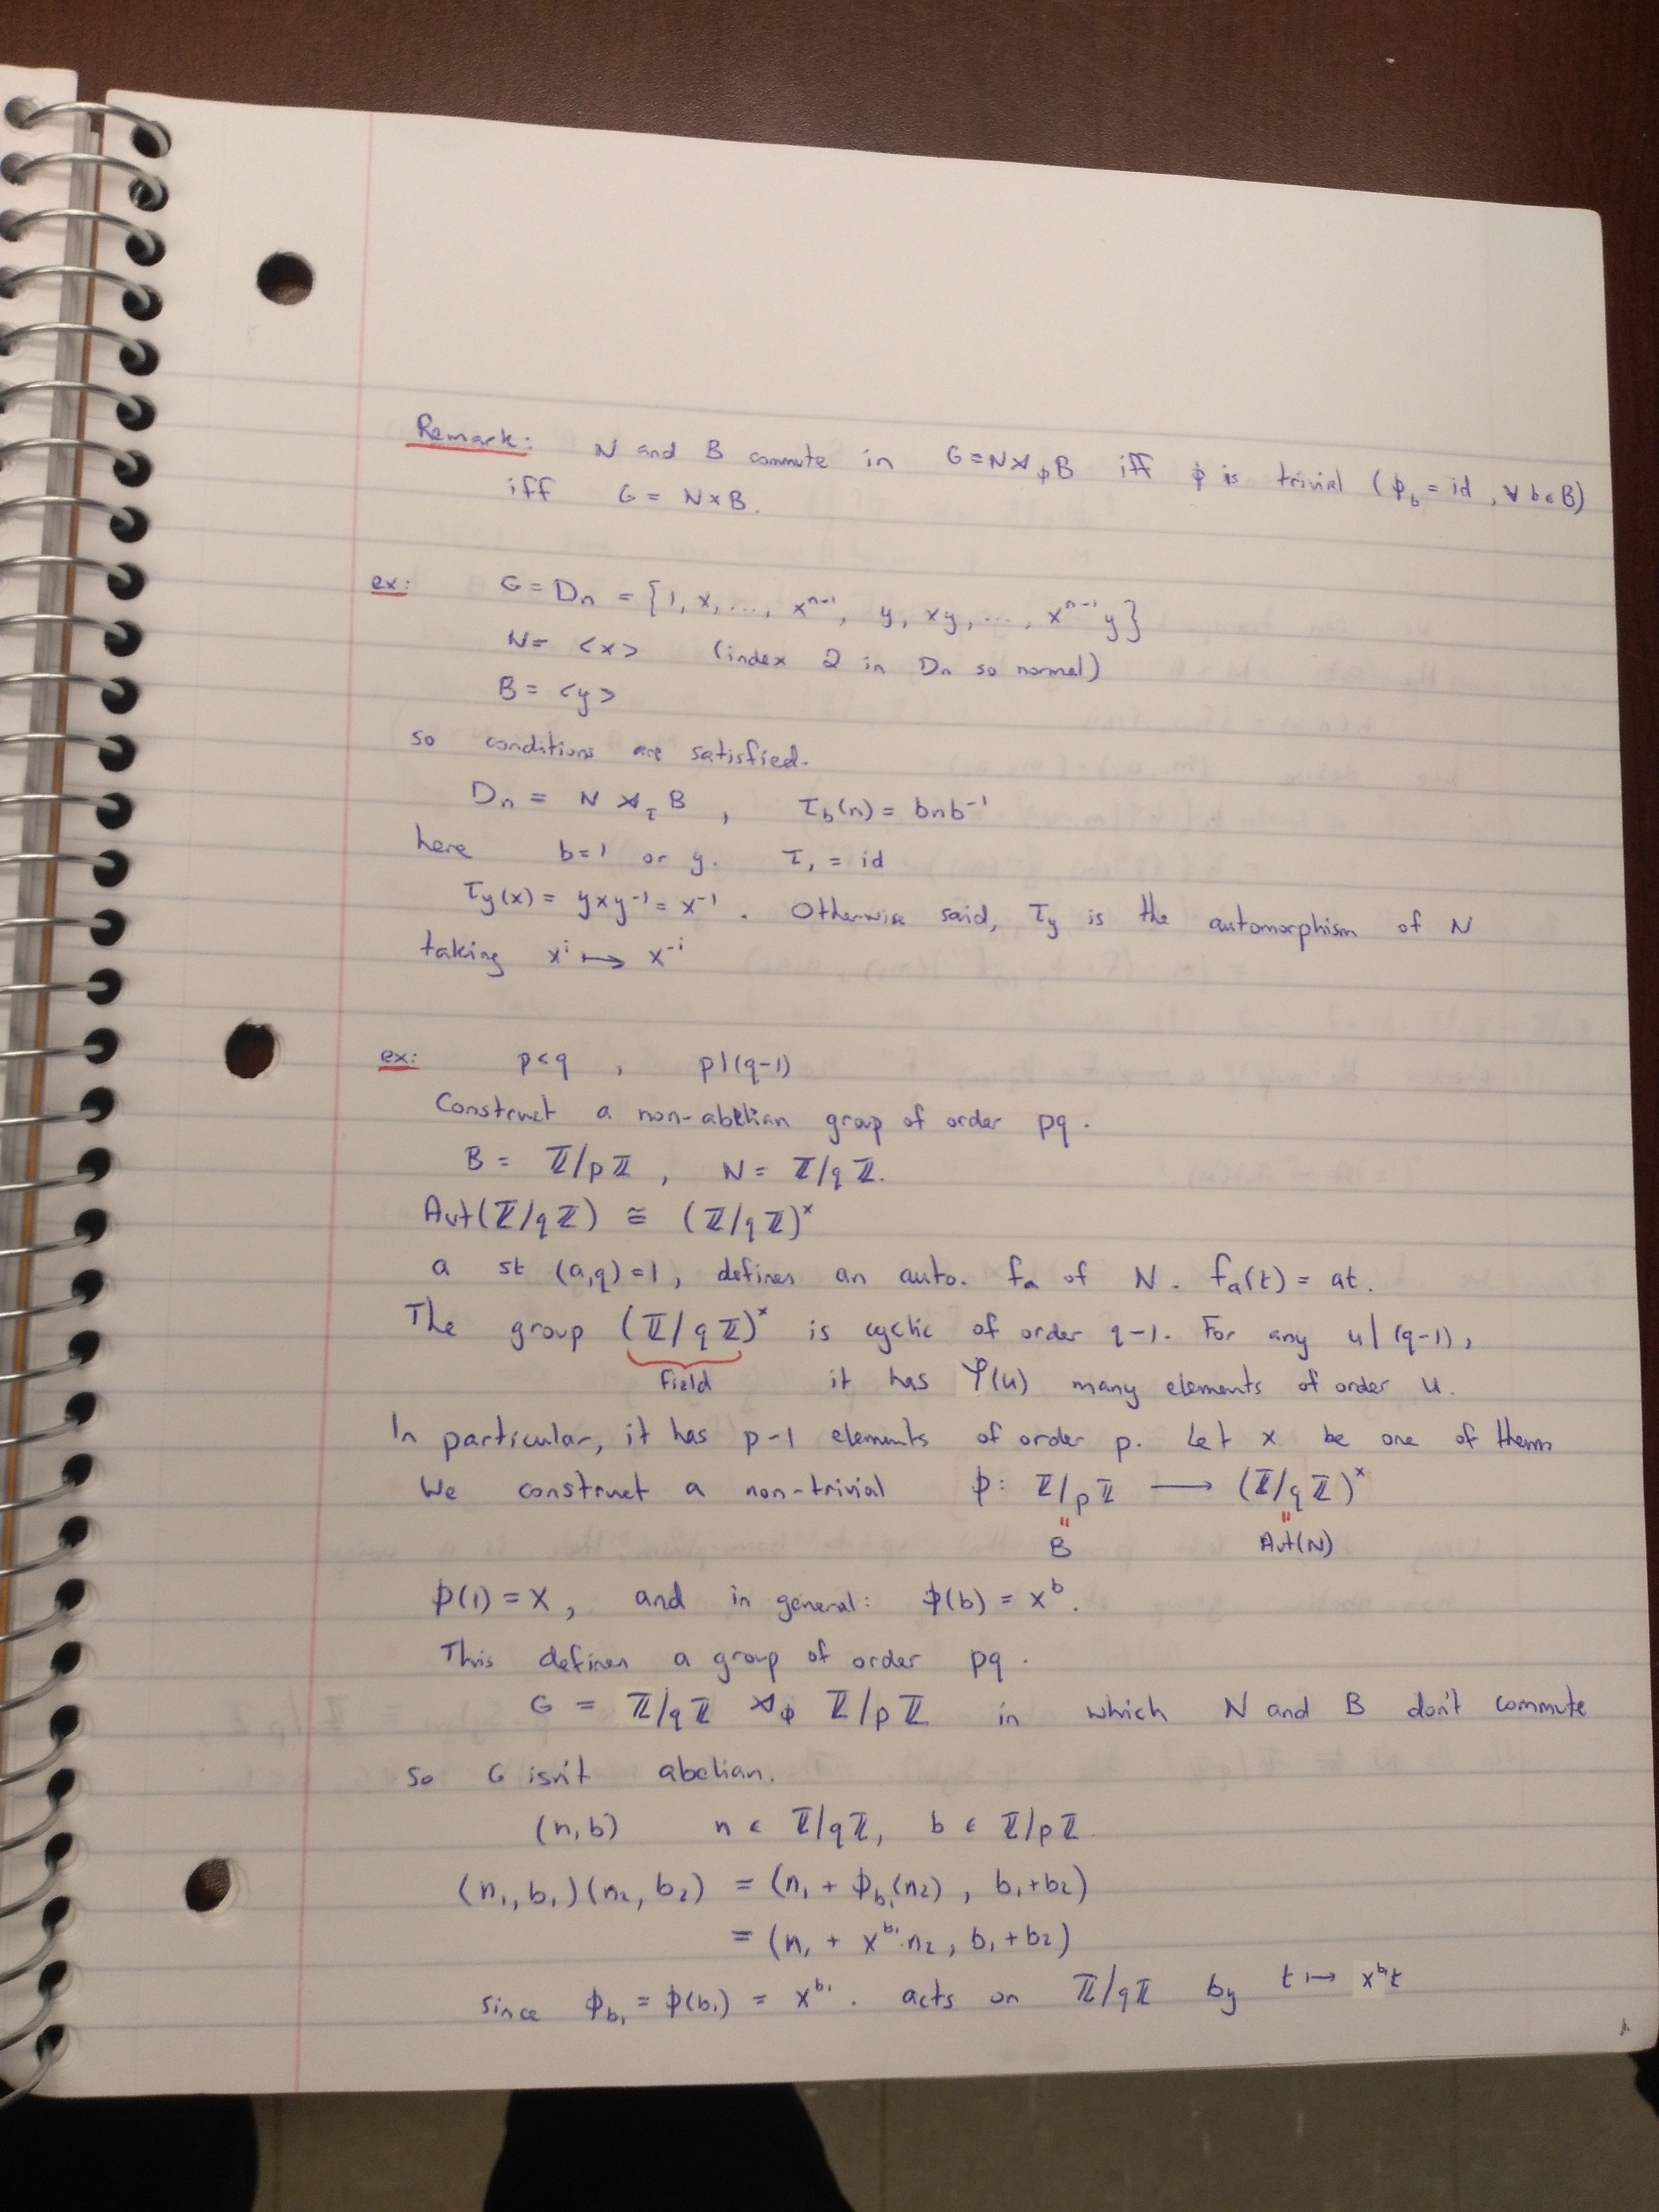 Remark: N and B commute in G = N ⋊_ϕ B iff ϕ is trivial (ϕ_b = id, ∀ b ∈ B)
iff G = N × B.
ex: G = D_n = {1, x, ..., x^{n-1}, y, xy, ..., x^{n-1}y}
N = <x> (index 2 in D_n so normal)
B = <y>
so conditions are satisfied.
D_n = N ⋊_τ B, τ_b(n) = bnb^{-1}
here b=1 or y. τ_1 = id
τ_y(x) = yxy^{-1} = x^{-1}. Otherwise said, τ_y is the automorphism of N
taking x^i ↦ x^{-i}
ex: p<q, p|(q-1)
Construct a non-abelian group of order pq.
B = ℤ/pℤ, N = ℤ/qℤ.
Aut(ℤ/qℤ) ≅ (ℤ/qℤ)^×
a st (a,q)=1, defines an auto. f_a of N. f_a(t) = at.
The group (ℤ/qℤ)^× is cyclic of order q-1. For any u|(q-1),
field it has φ(u) many elements of order u.
In particular, it has p-1 elements of order p. Let x be one of them
We construct a non-trivial ϕ: ℤ/pℤ ⟶ (ℤ/qℤ)^×
" "
B Aut(N)
ϕ(1) = x, and in general: ϕ(b) = x^b.
This defines a group of order pq.
G = ℤ/qℤ ⋊_ϕ ℤ/pℤ in which N and B don't commute
so G isn't abelian.
(n,b) n ∈ ℤ/qℤ, b ∈ ℤ/pℤ
(n_1, b_1)(n_2, b_2) = (n_1 + ϕ_{b_1}(n_2), b_1+b_2)
= (n_1 + x^{b_1}·n_2, b_1+b_2)
since ϕ_{b_1} = ϕ(b_1) = x^{b_1}. acts on ℤ/qℤ by t ↦ x^{b_1}t